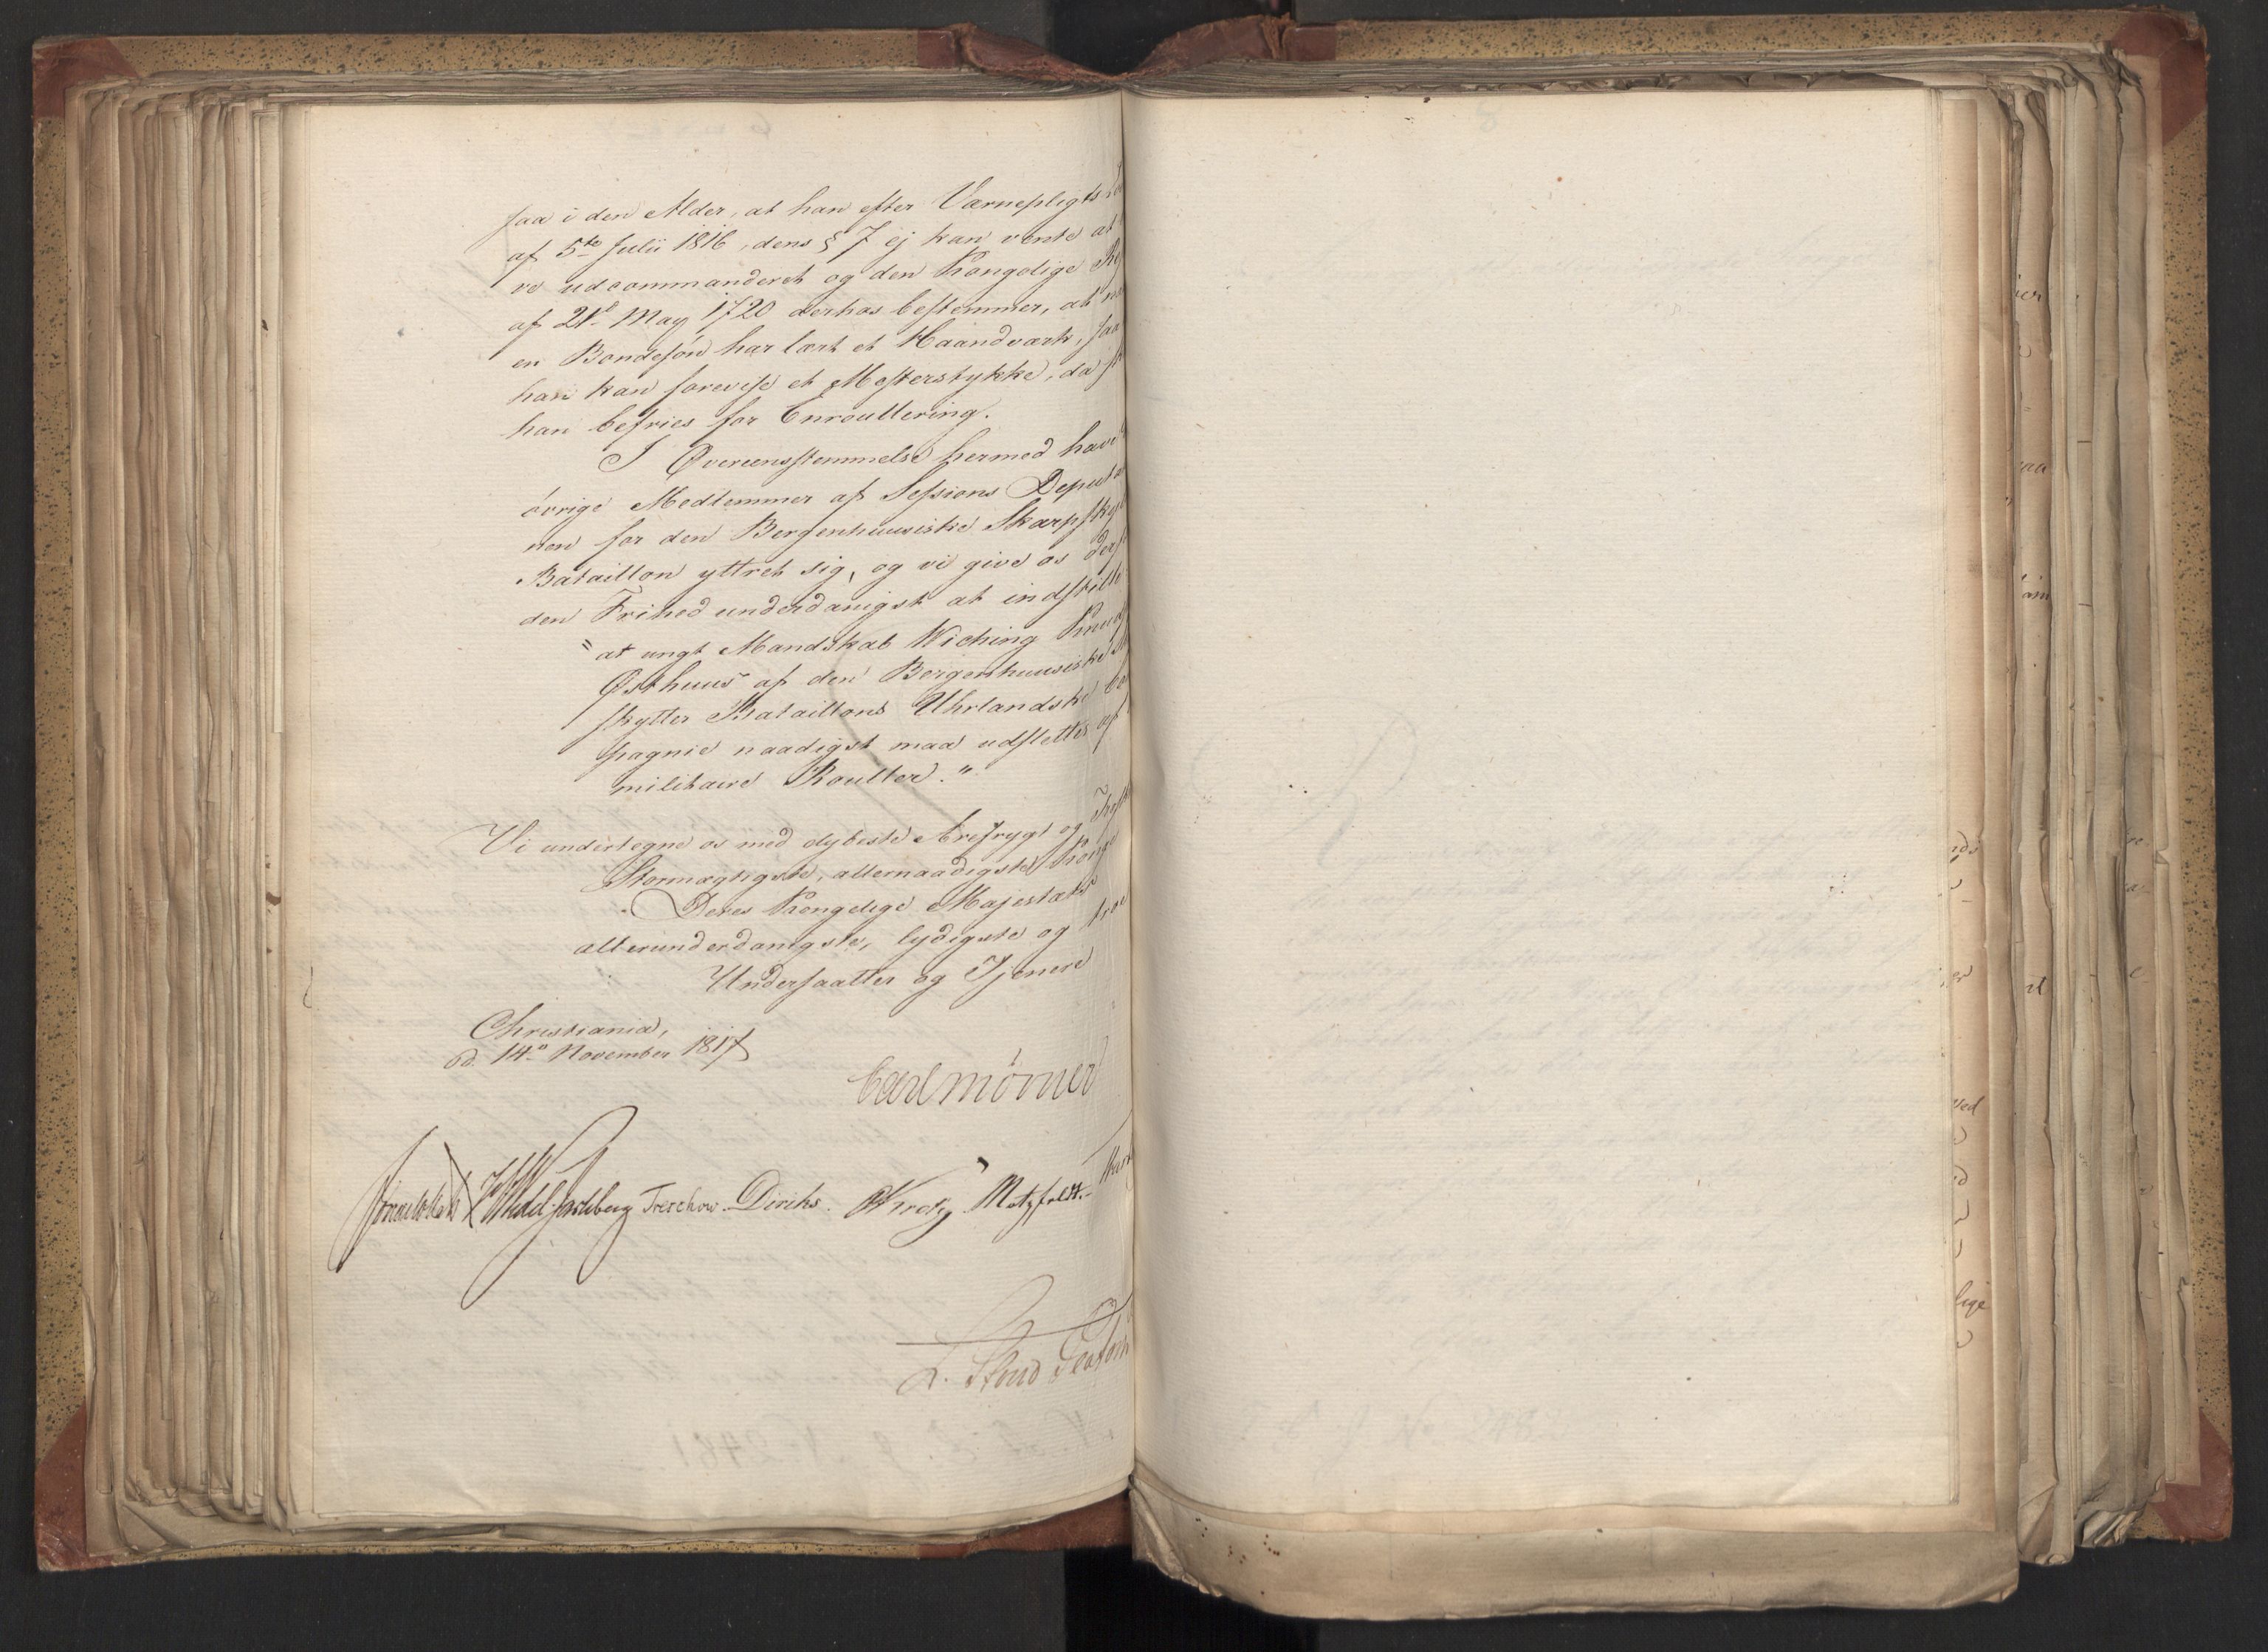 saa i den Alder, at han efter Værnepligts Lo
af 5te Julii 1816, dens § 7 ej kan vente at
ve udcommanderet og den Kongelige Re
af 21de May 1720 derhos bestemmer, at
en Bondesøn har lært et Haandværk, saa
han kan forevise et Mesterstykke, da
han befries for Enroullering.
I Overeensstemmelse hermed have
øvrige Medlemmer af Sessions Deputa
nen for den Bergenhuusiske Skarpsky
Bataillon yttret sig, og vi give os
den Frihed underdanigst at indstille
"at ungt Mandskab Wiching Knud
Østhuus af den Bergenhuusiske
skytter Bataillons Uhrlandske
pagnie naadigst maa udslettes af
militaire Rouller."
Vi undertegne os med dybeste Ærefrygt og
Stormægtigste, allernaadigste Konge
Deres Kongelige Majestæts
allerunderdanigste, lydigste og troe
Undersaatter og Tjenere
Christiania,
d. 14de November 1817
Carl Mörner
Wedel Jarlsberg Treschow Diriks. Krog Motzfeldt.
L. Stoud Platou
N: 2481
No 248